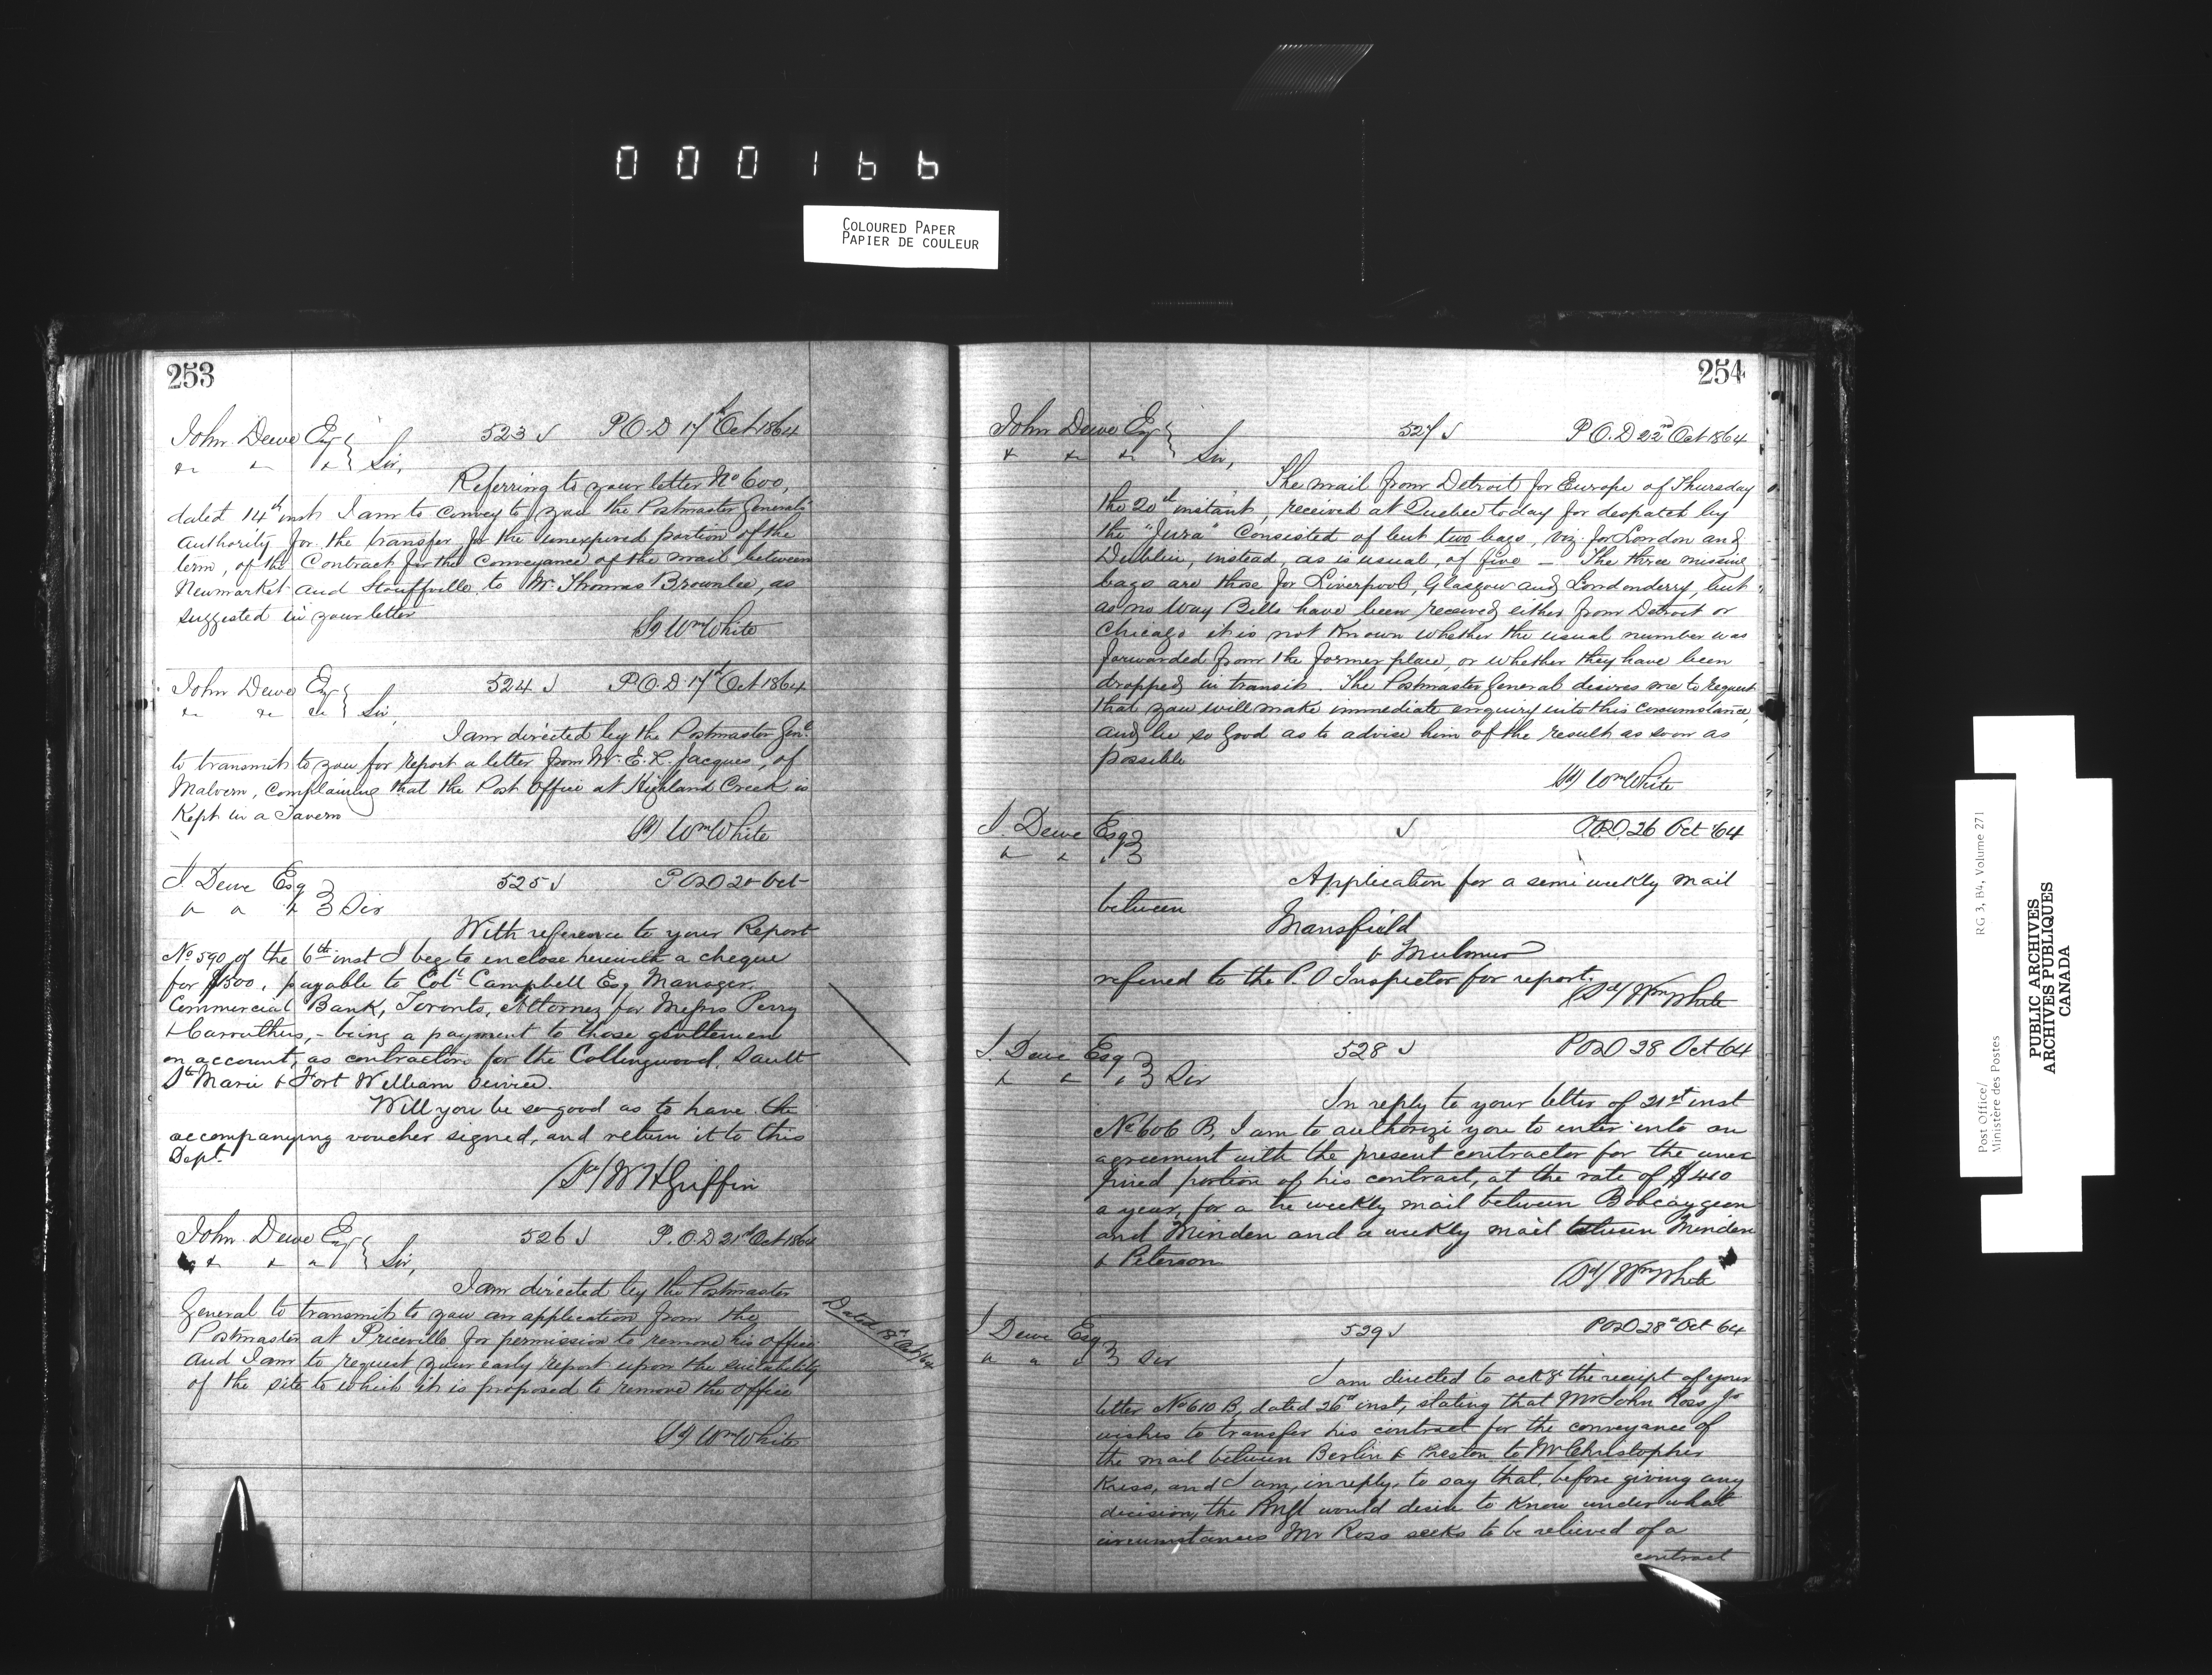 000166
COLOURED PAPER
PAPIER DE COULEUR
253
John Dewe Esq 523 P.O.D 17th Oct 1864
" " " Sir,
Referring to your letter No 600,
dated 14th inst I am to convey to you the Postmaster General's
authority for the transfer for the unexpired portion of the
term, of the Contract for the Conveyance of the mail between
Newmarket and Stouffville to Mr Thomas Brownlee, as
suggested in your letter
(Sd) Wm White
John Dewe Esq 524 P.O.D 17th Oct 1864
" " " Sir,
I am directed by the Postmaster Genl
to transmit to you for report a letter from Mr. E. L. Jacques, of
Malvern, complaining that the Post Office at Highland Creek is
Kept in a Tavern
(Sd) Wm White
J. Dewe Esq 525 P.O.D 20 Oct
" " " Sir
With reference to your Report
No 590 of the 6th inst I beg to enclose herewith a cheque
for $500, payable to Colt Campbell Esq Manager
Commercial Bank, Toronto, Attorney for Messrs Perry
& Carruthers, - being a payment to those gentlemen
on account, as contractors for the Collingwood, Sault
Ste Marie & Fort William service.
Will you be so good as to have the
accompanying voucher signed, and return it to this
Dept.
(Sd/ W H Griffin
John Dewe Esq 526 P.O.D 21st Oct 1864
" " " Sir,
I am directed by the Postmaster
General to transmit to you an application from the
Postmaster at Priceville for permission to remove his office
and I am to request your early report upon the suitability
of the site to which it is proposed to remove the office
Dated 18th Oct/64
(Sd) Wm White
254
John Dewe Esq 527 P.O.D 22nd Oct 1864
" " " Sir,
The mail from Detroit for Europe of Thursday
the 20th instant, received at Quebec today for despatch by
the "Jura" Consisted of but two bags, viz. for London and
Dublin, instead, as is usual, of five — The three missing
bags are those for Liverpool, Glasgow and Londonderry, but
as no Way Bills have been received either from Detroit or
Chicago it is not Known whether the usual number was
forwarded from the former place, or whether they have been
dropped in transit. The Postmaster General desires me to request
that you will make immediate enquiry into this circumstance,
and be so good as to advise him of the result as soon as
possible
(Sd) Wm White
J. Dewe Esq P.O.D. 26 Oct 64
" " "
Application for a semi weekly mail
between
Mansfield
& Mulmur
referred to the P.O Inspector for report.
(Sd/ Wm White
J. Dewe Esq 528 P.O.D 28 Oct 64
" " " Sir
In reply to your letter of 21st inst
No 606 B, I am to authorize you to enter into an
agreement with the present contractor for the unex
pired portion of his contract, at the rate of $410
a year, for a tri weekly mail between Bobcaygeon
and Minden and a weekly mail between Minden
& Peterson
(Sd/ Wm White
J Dewe Esq 529 P.O.D 28th Oct 64
" " " Sir
I am directed to ackge the receipt of your
letter No 610 B, dated 26th inst, stating that Mr John Ross Jr
wishes to transfer his contract for the conveyance of
the mail between Berlin & Preston to Mr Christopher
Kress, and I am, in reply, to say that, before giving any
decision, the PMGl would desire to know under what
circumstances Mr Ross seeks to be relieved of a
contract
Post Office/
Ministère des Postes
RG 3, B4, Volume 271
PUBLIC ARCHIVES
ARCHIVES PUBLIQUES
CANADA